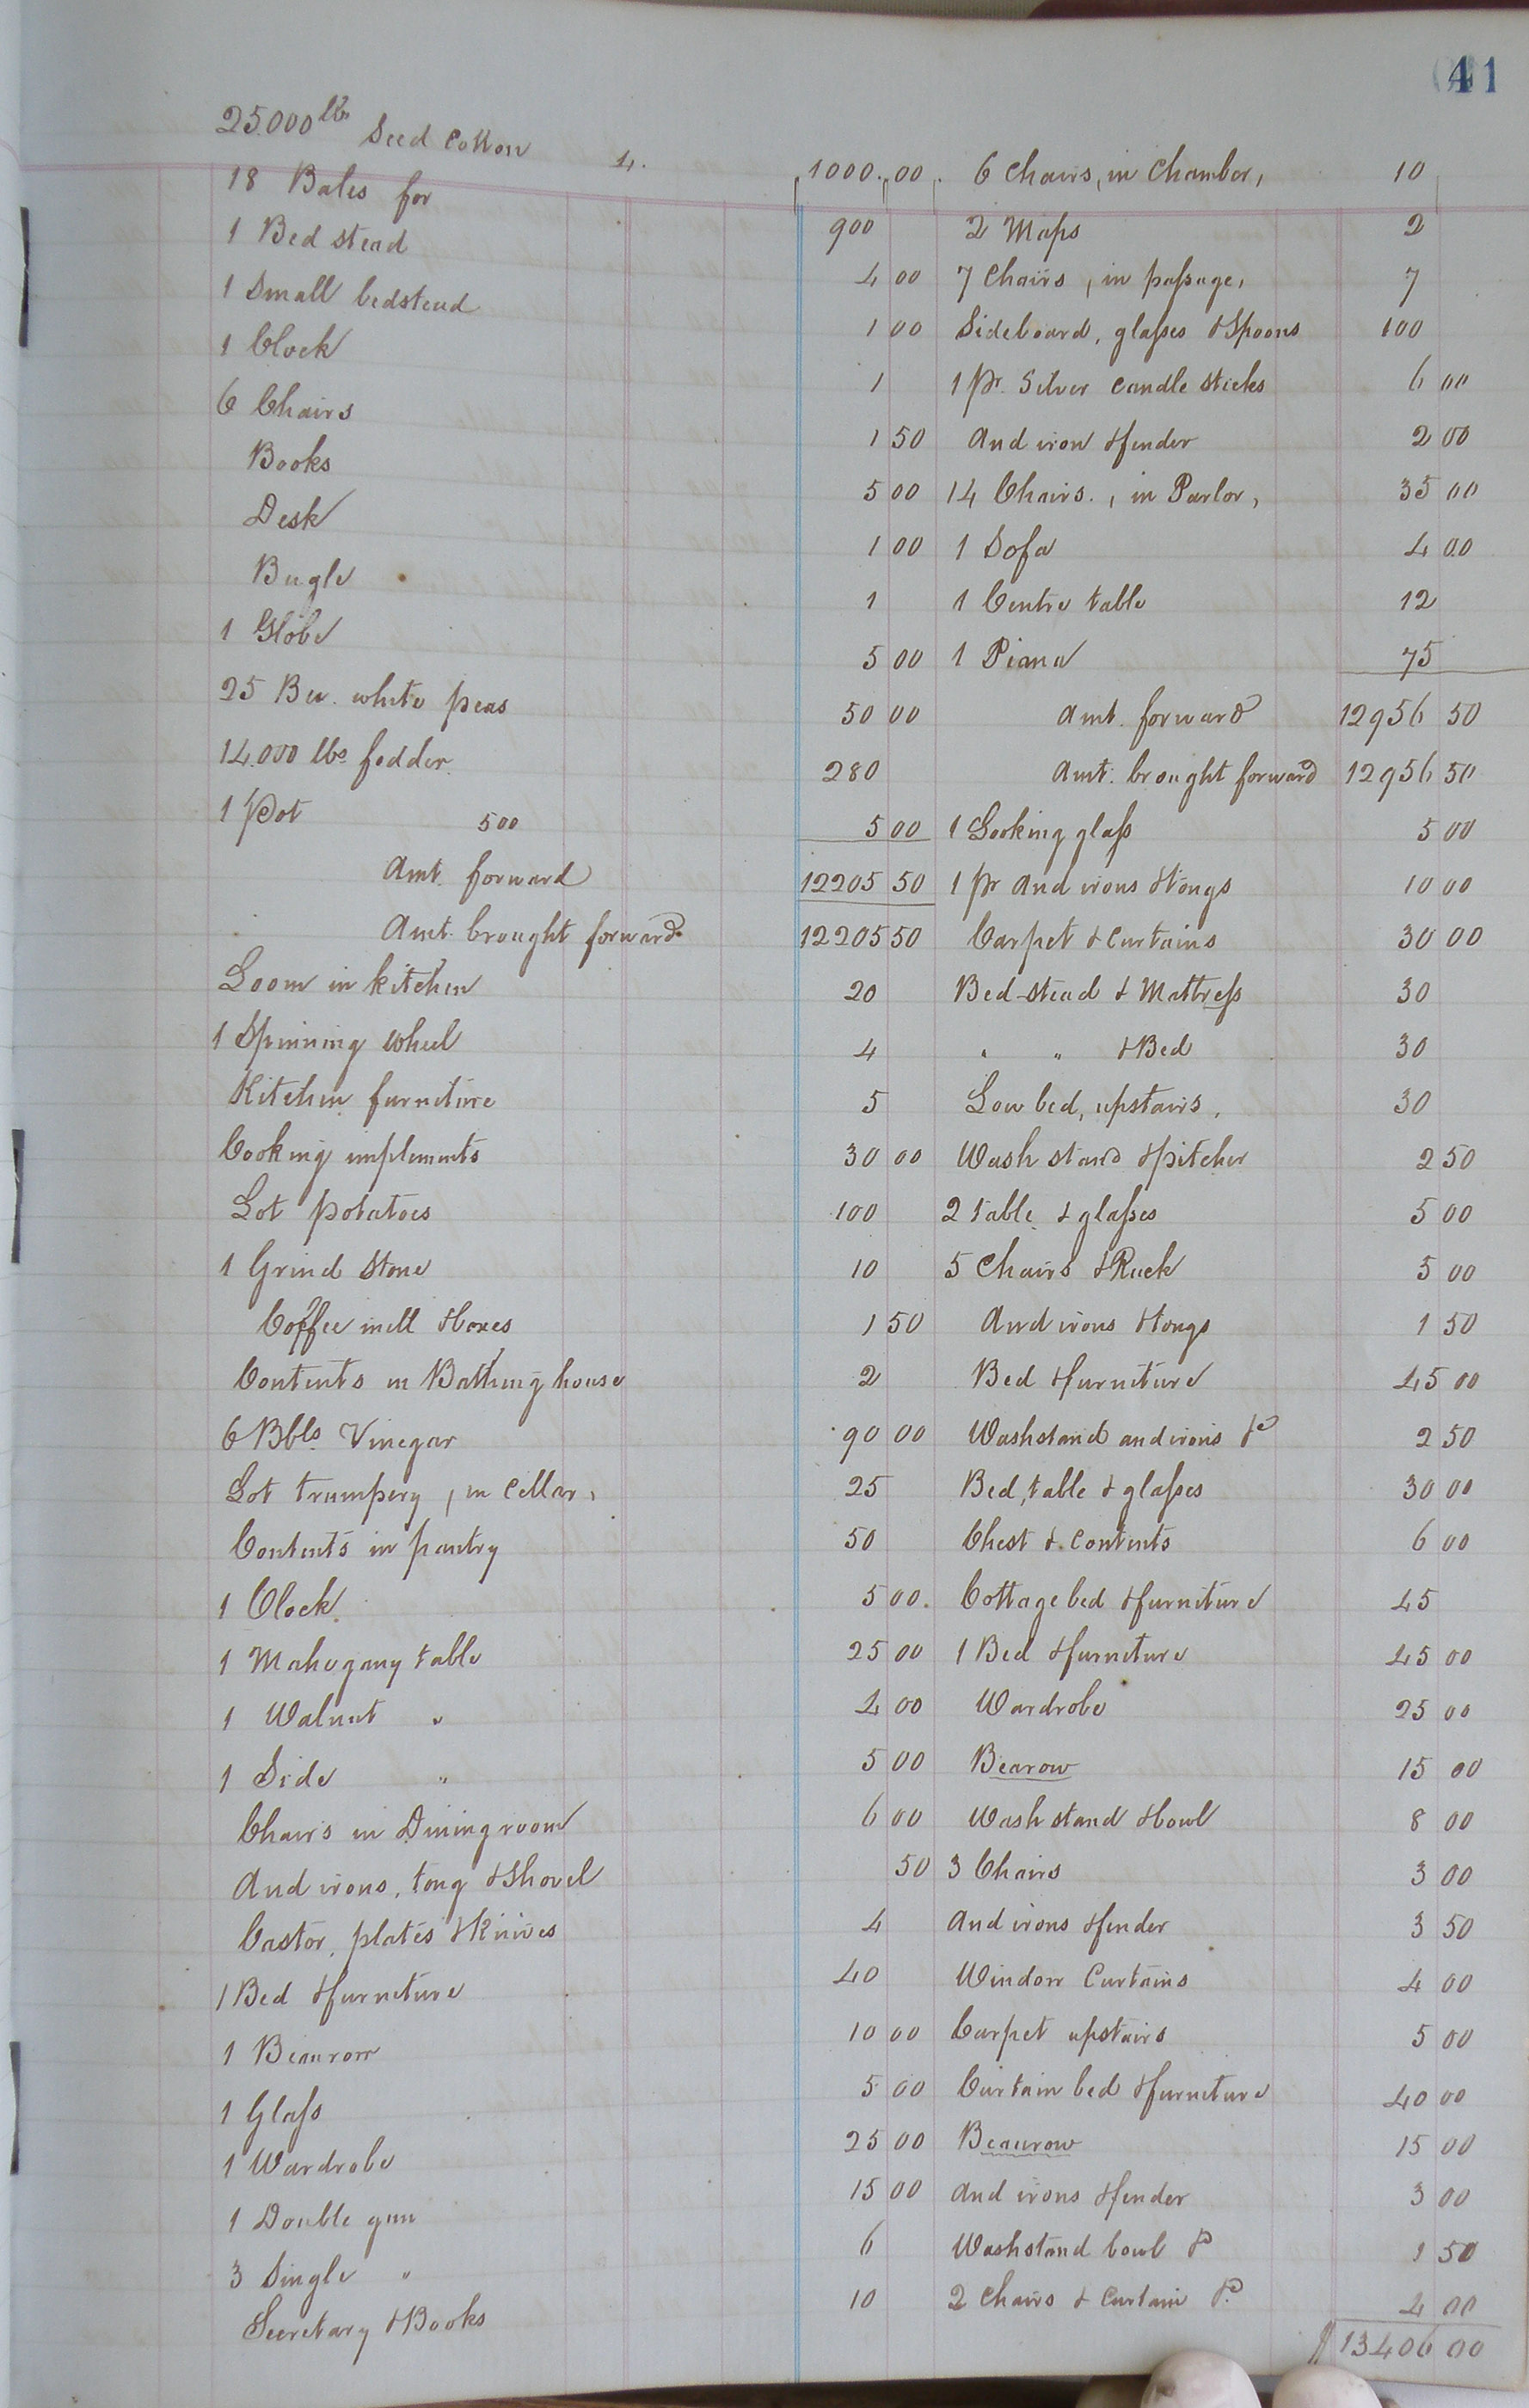 41
25.000 lbs Seed Cotton 4. 1000.00
18 Bales for 900
1 Bed stead 4 00
1 Small bedstead 1 00
1 Clock 1
6 Chairs 1 50
Books 5 00
Desk 1 00
Bugle 1
1 Globe 5 00
25 Bu. white peas 50 00
14.000 lbs fodder 280
1 Pot 500 5 00
Amt. forward 12205 50
Amt. brought forward 12205 50
Loom in kitchen 20
1 Spinning wheel 4
Kitchen furniture 5
Cooking implements 30 00
Lot potatoes 100
1 Grind stone 10
Coffee mill & boxes 1 50
Contents in Bathing house 2
6 Bbls. Vinegar 90 00
Lot trumpery, in cellar, 25
Contents in pantry 50
1 Clock 5 00.
1 Mahogany table 25 00
1 Walnut " 4 00
1 Side " 5 00
Chairs in Dining room 6 00
And irons, tong & Shovel 50
Castor, plates & Knives 4
1 Bed & furniture 40
1 Beaurow 10 00
1 Glass 5 00
1 Wardrobe 25 00
1 Double gun 15 00
3 Single " 6
Secretary & Books 10
6 Chairs, in Chamber, 10
2 Maps 2
7 Chairs, in passage, 7
Sideboard, glasses & Spoons 100
1 pr. Silver candle sticks 6 00
And iron & fender 2 00
14 Chairs., in Parlor, 35 00
1 Sofa 4 00
1 Centre table 12
1 Piano 75
Amt. forward 12956 50
Amt. brought forward 12956 50
1 Looking glass 5 00
1 pr And irons & tongs 10 00
Carpet & curtains 30 00
Bed-stead & Mattress 30
" " & Bed 30
Low bed, upstairs, 30
Wash stand & pitcher 2 50
2 table & glasses 5 00
5 Chairs & Rack 5 00
And irons & tongs 1 50
Bed & furniture 45 00
Washstand andirons &c 2 50
Bed, table & glasses 30 00
Chest & contents 6 00
Cottage bed & furniture 45
1 Bed & furniture 45 00
Wardrobe 25 00
Bearow 15 00
Wash stand & bowl 8 00
3 Chairs 3 00
And irons & fender 3 50
Window Curtains 4 00
Carpet upstairs 5 00
Curtain bed & furniture 40 00
Beaurow 15 00
And irons & fender 3 00
Washstand bowl &c 1 50
2 Chairs & Curtain &c. 4 00
$13406 00